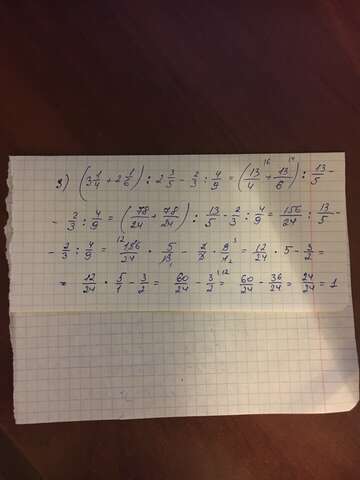 3) (3 1/4 + 2 1/6) : 2 3/5 - 2/3 : 4/9 = (13/4 16 + 13/6 14) : 13/5 -
- 2/3 : 4/9 = (78/24 + 78/24) : 13/5 - 2/3 : 4/9 = 156/24 : 13/5 -
- 2/3 : 4/9 = 12 156/24 · 5/13 1 - 2/3 · 9/4 2 = 12/24 · 5 - 3/2 =
= 12/24 · 5/1 - 3/2 = 60/24 - 3/2 (12 = 60/24 - 36/24 = 24/24 = 1